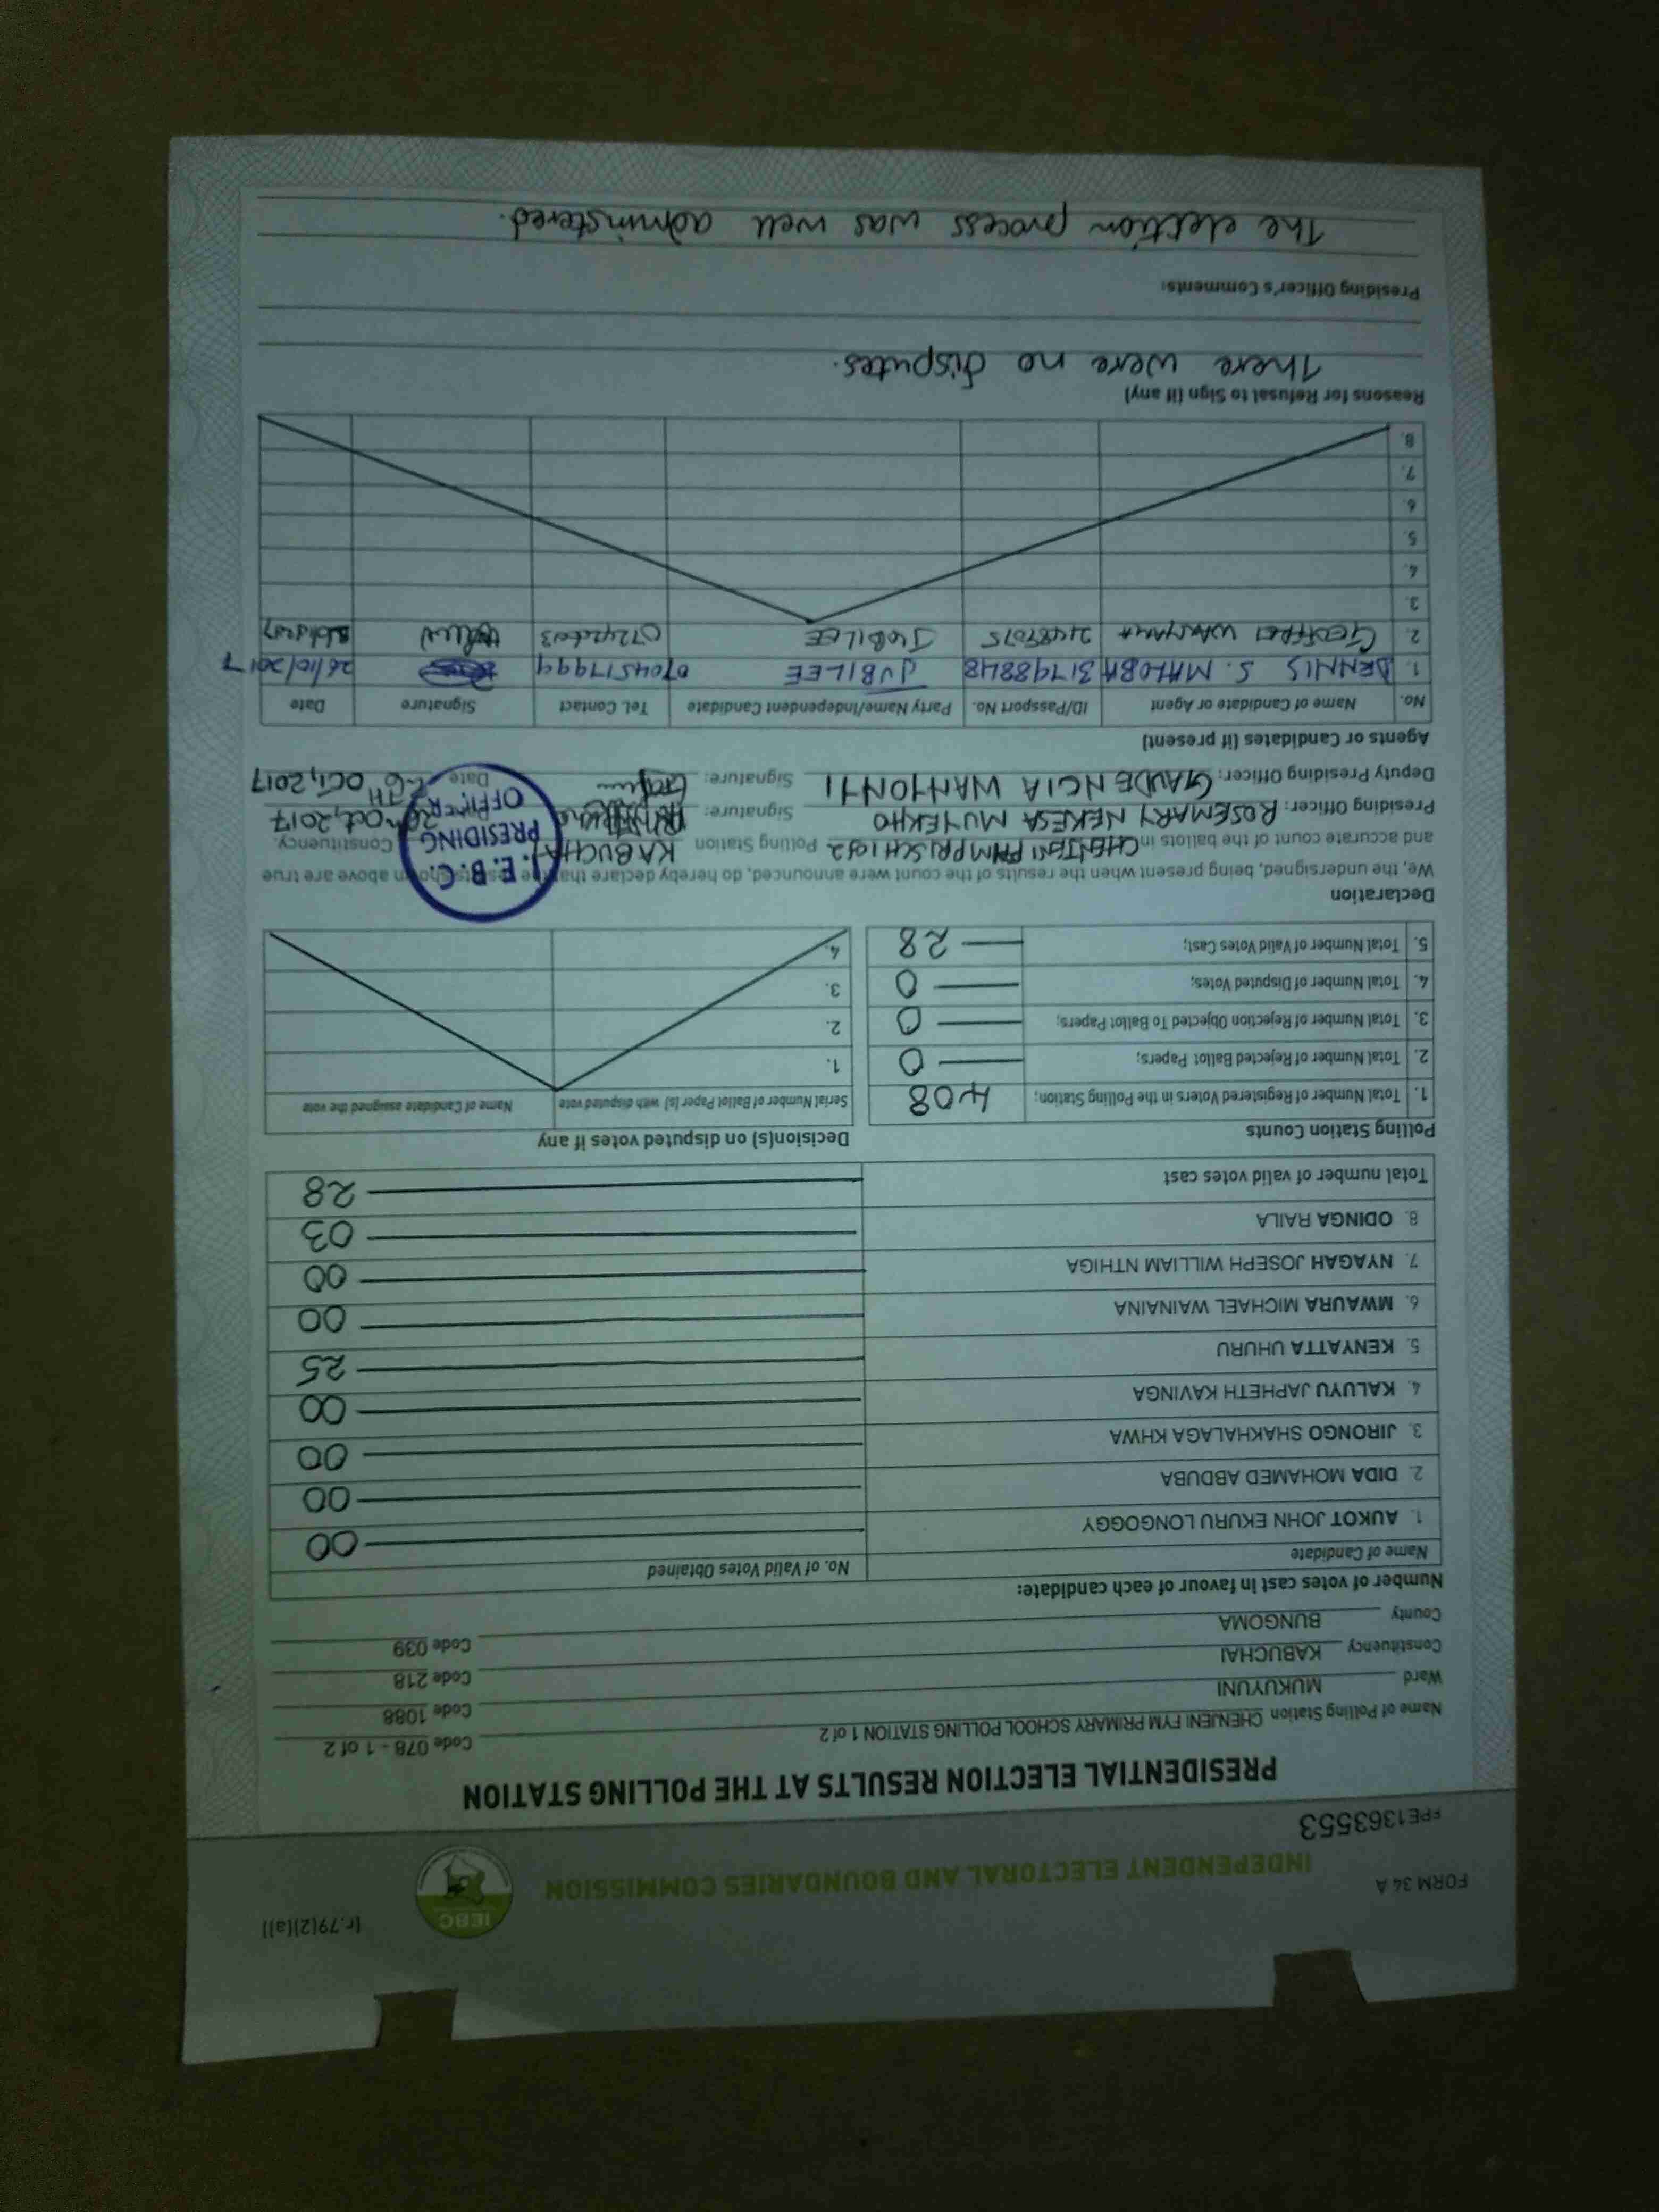 FORM 34 A
(r.79(2)(a))
IEBC
INDEPENDENT ELECTORAL AND BOUNDARIES COMMISSION
FPE1363553
PRESIDENTIAL ELECTION RESULTS AT THE POLLING STATION
Name of Polling Station CHENJENI FYM PRIMARY SCHOOL POLLING STATION 1 of 2 Code 078 - 1 of 2
Ward MUKUYUNI Code 1088
Constituency KABUCHAI Code 218
County BUNGOMA Code 039
Number of votes cast in favour of each candidate:
Name of Candidate No. of Valid Votes Obtained
1. AUKOT JOHN EKURU LONGOGGY 00
2. DIDA MOHAMED ABDUBA 00
3. JIRONGO SHAKHALAGA KHWA 00
4. KALUYU JAPHETH KAVINGA 00
5. KENYATTA UHURU 25
6. MWAURA MICHAEL WAINAINA 00
7. NYAGAH JOSEPH WILLIAM NTHIGA 00
8. ODINGA RAILA 03
Total number of valid votes cast 28
Polling Station Counts
1. Total Number of Registered Voters in the Polling Station; 408
2. Total Number of Rejected Ballot Papers; 0
3. Total Number of Rejection Objected To Ballot Papers; 0
4. Total Number of Disputed Votes; 0
5. Total Number of Valid Votes Cast; 28
Decision(s) on disputed votes if any
Serial Number of Ballot Paper (s) with disputed vote Name of Candidate assigned the vote
1.
2.
3.
4.
Declaration
We, the undersigned, being present when the results of the count were announced, do hereby declare that the results shown above are true
and accurate count of the ballots in CHENJENI FYM PRI SCH 1 of 2 Polling Station KABUCHAI Constituency.
Presiding Officer: ROSEMARY NEKESA MUYEKHO Signature: 26TH Oct, 2017
Deputy Presiding Officer: GAUDENCIA WANYONYI Signature: Date 26TH Oct, 2017
I.E.B.C.
PRESIDING
OFFICER
Agents or Candidates (if present)
No. Name of Candidate or Agent ID/Passport No. Party Name/Independent Candidate Tel. Contact Signature Date
1. DENNIS S. MAKOBA 31798848 JUBILEE 0704517999 26/10/2017
2. WANYAMA JUBILEE
3.
4.
5.
6.
7.
8.
Reasons for Refusal to Sign (if any)
There were no disputes.
Presiding Officer's Comments:
The election process was well adminstered.